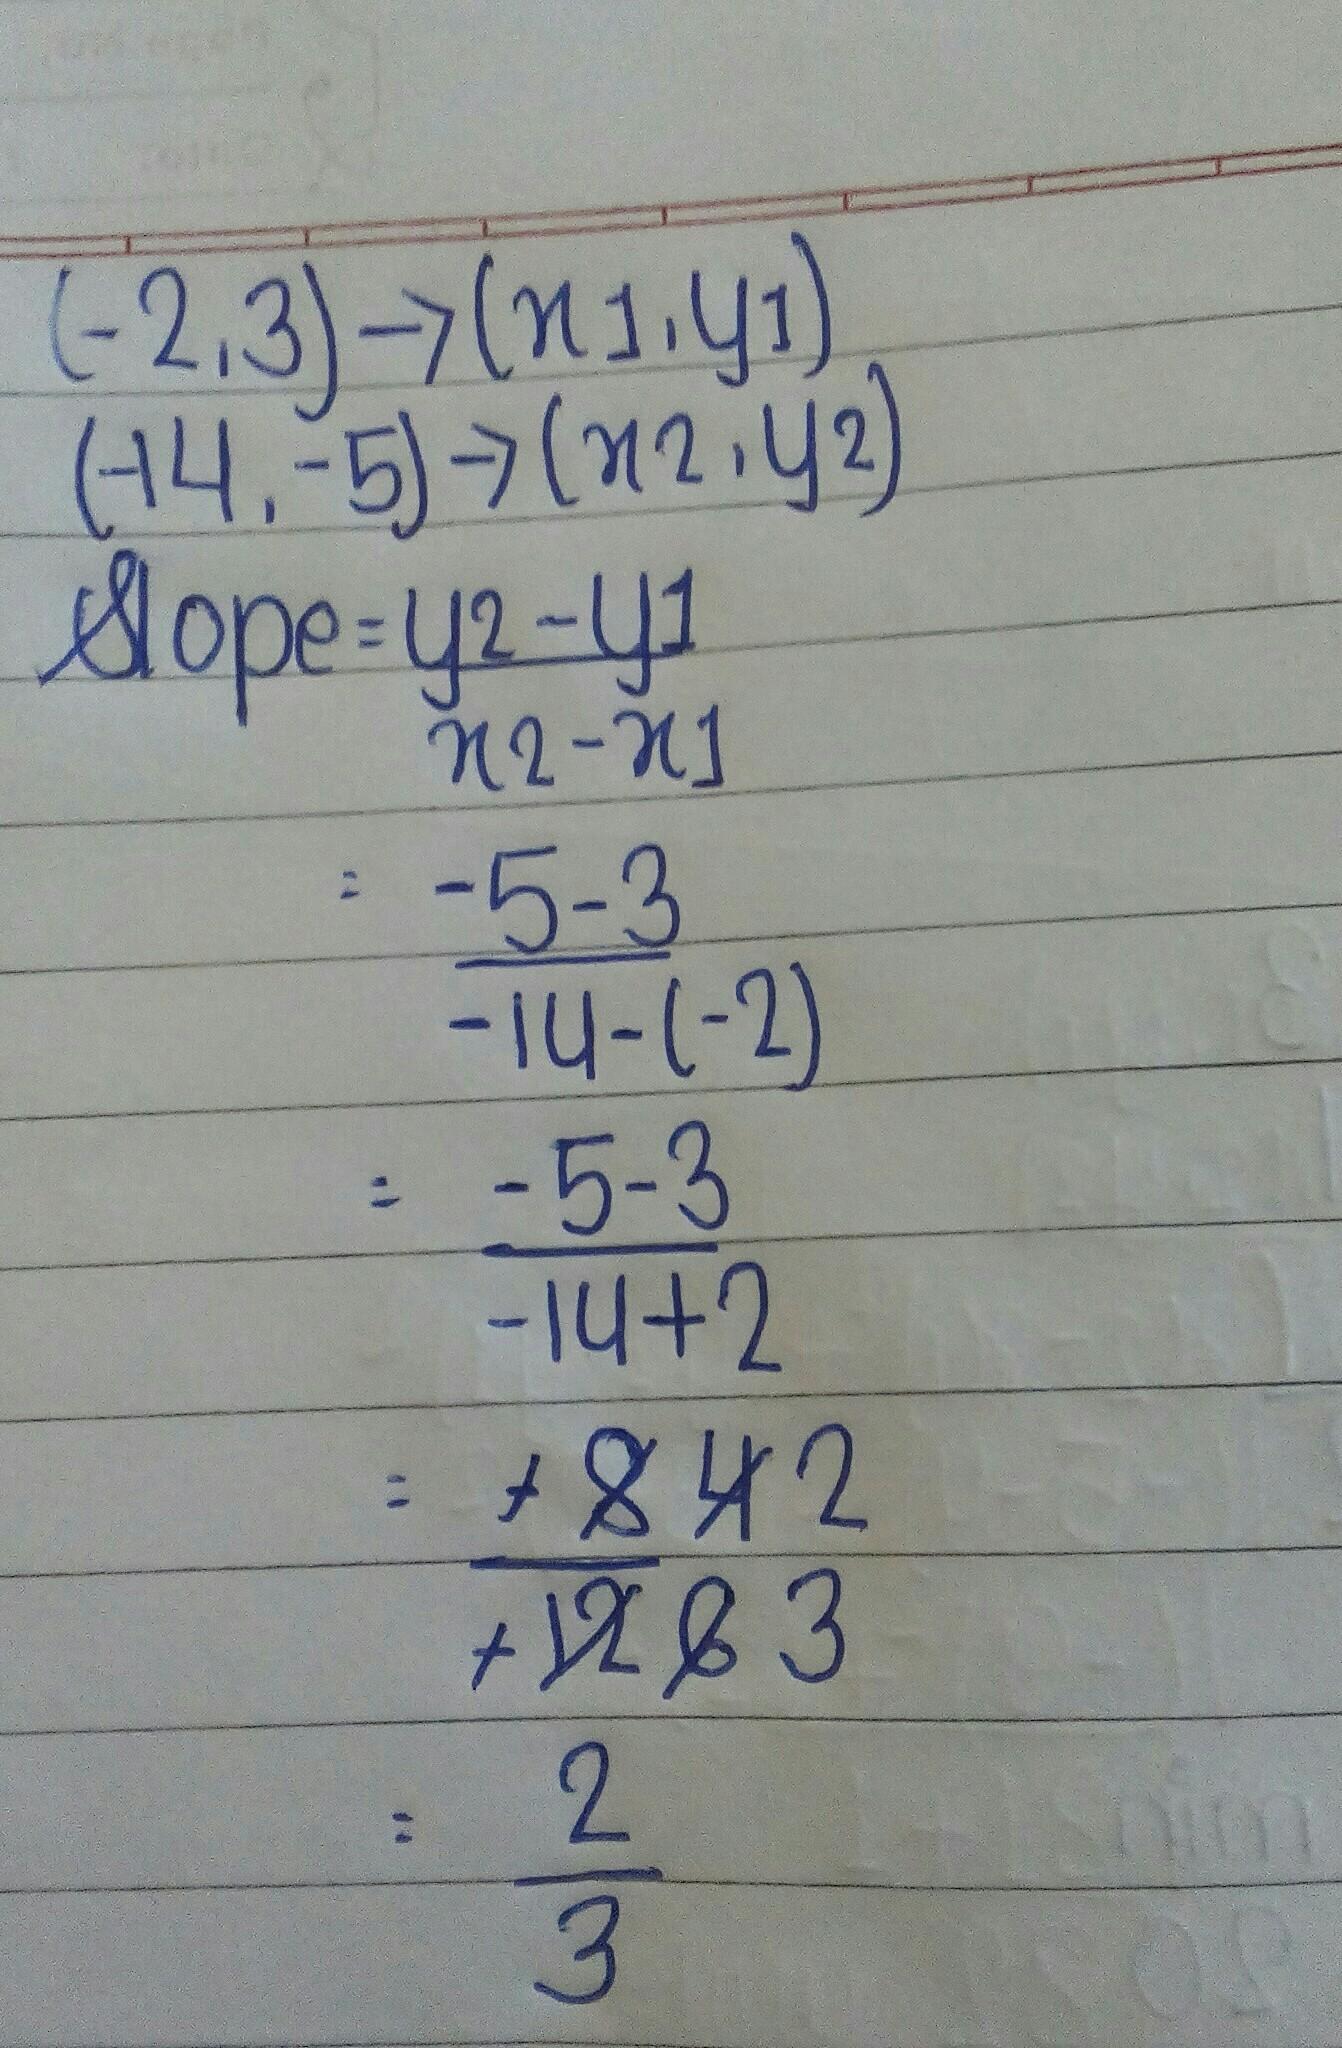 (-2,3)→(x1,y1)
(-14,-5)→(x2,y2)
Slope=y2-y1
x2-x1
= -5-3
-14-(-2)
= -5-3
-14+2
= +8 4 2
+12 6 3
= 2
3